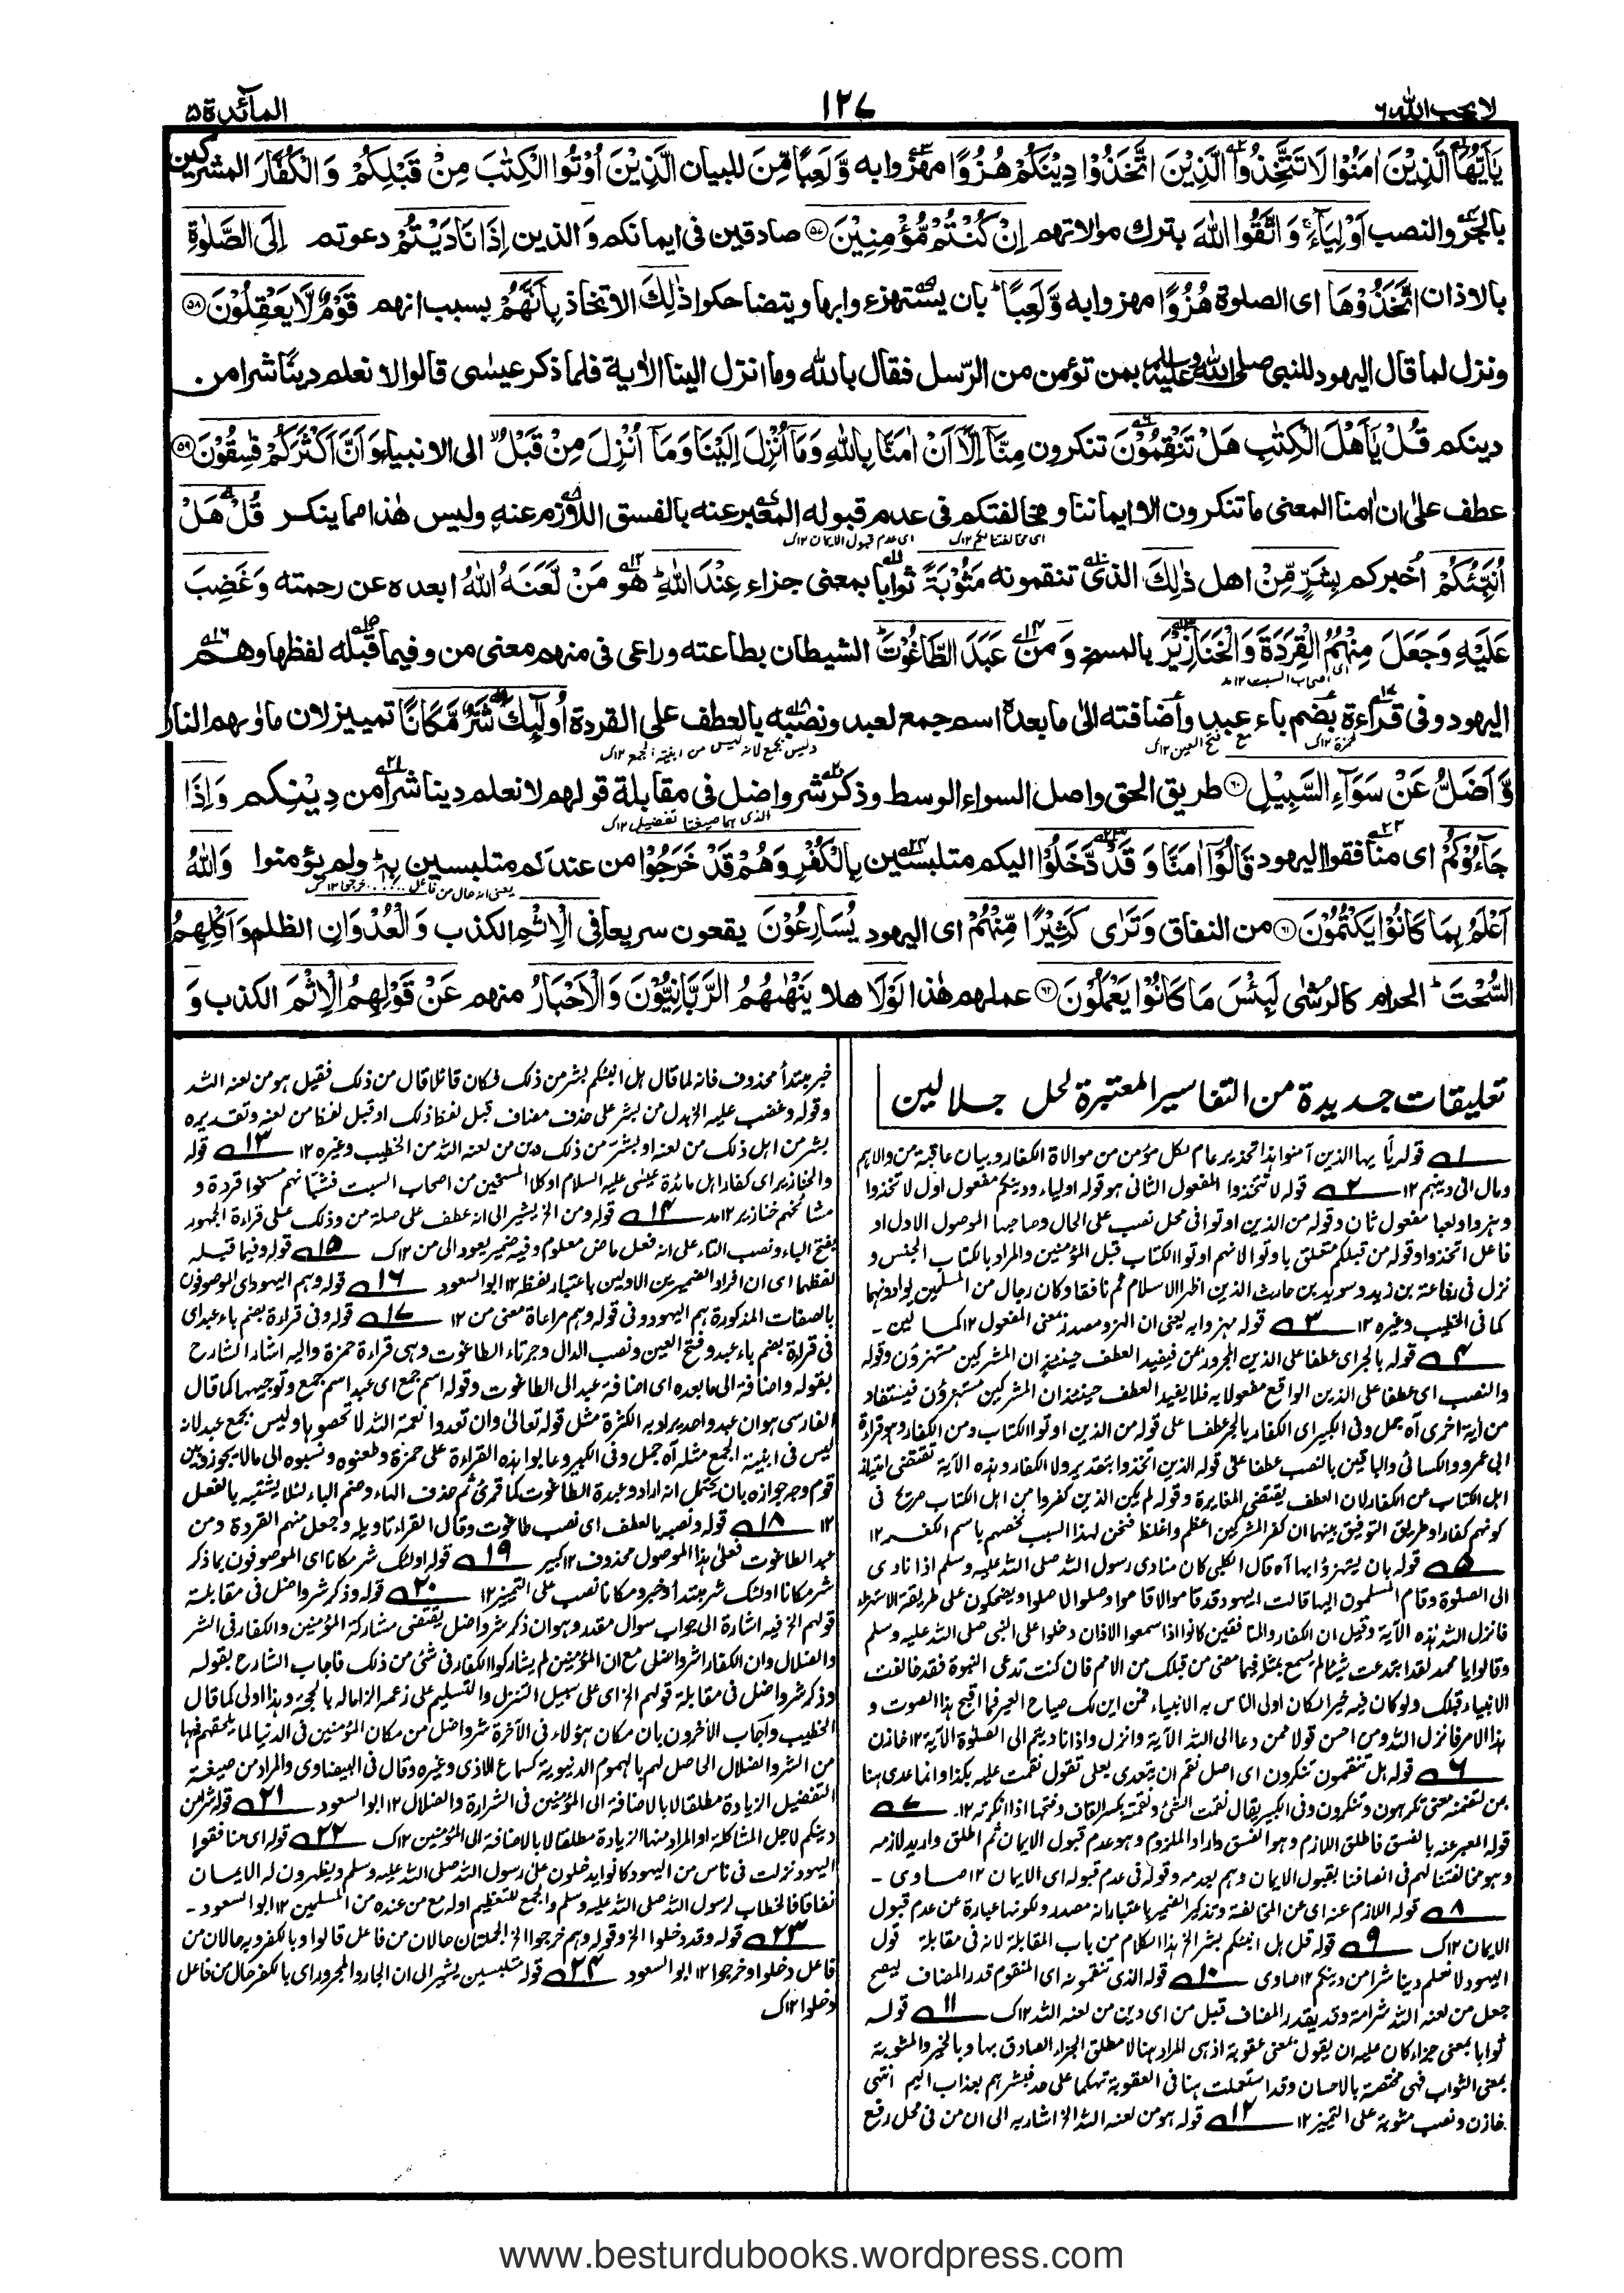 لا يحب الله ٦
١٢٧
المآئدة ۵
يٰۤاَيُّهَا الَّذِيْنَ اٰمَنُوْا لَا تَتَّخِذُوا الَّذِيْنَ اتَّخَذُوْا دِيْنَكُمْ هُزُوًا مهزوا به وَّلَعِبًا مِّنَ للبيان الَّذِيْنَ اُوْتُوا الْكِتٰبَ مِنْ قَبْلِكُمْ وَالْكُفَّارَ المشركين
بالجر والنصب اَوْلِيَآءَ ۚ وَاتَّقُوا اللّٰهَ بترك موالاتهم اِنْ كُنْتُمْ مُّؤْمِنِيْنَ ۝۵٧ صادقين فى ايمانكم وَ الذين اِذَا نَادَيْتُمْ دعوتم اِلَى الصَّلٰوةِ
بالاذان اتَّخَذُوْهَا اى الصلوة هُزُوًا مهزوا به وَّلَعِبًا ؕ بان يستهزءوا بها ويتضاحكوا ذٰلِكَ الاتخاذ بِاَنَّهُمْ بسبب انهم قَوْمٌ لَّا يَعْقِلُوْنَ ۝۵٨
ونزل لما قال اليهود للنبى صلى الله عليه وسلم بمن تؤمن من الرسل فقال بالله وما انزل الينا الاٰية فلما ذكر عيسٰى قالوا لا نعلم دينًا شرا من
دينكم قُلْ يٰۤاَهْلَ الْكِتٰبِ هَلْ تَنْقِمُوْنَ تنكرون مِنَّاۤ اِلَّاۤ اَنْ اٰمَنَّا بِاللّٰهِ وَمَاۤ اُنْزِلَ اِلَيْنَا وَمَاۤ اُنْزِلَ مِنْ قَبْلُ ۙ الى الانبياء وَاَنَّ اَكْثَرَكُمْ فٰسِقُوْنَ ۝۵٩
عطف علٰى ان اٰمنا المعنى ما تنكرون الا ايماننا ومخالفتكم فى عدم قبوله المعبر عنه بالفسق اللازم عنه وليس هٰذا مما ينكر قُلْ هَلْ
اى مخالفتنا لكم ١٢ك اى عدم قبول الايمان ١٢ك
اُنَبِّئُكُمْ اخبركم بِشَرٍّ مِّنْ اهل ذٰلِكَ الذى تنقمونه مَثُوْبَةً ثوابا بمعنى جزاء عِنْدَ اللّٰهِ ؕ هو مَنْ لَّعَنَهُ اللّٰهُ ابعده عن رحمته وَغَضِبَ
عَلَيْهِ وَجَعَلَ مِنْهُمُ الْقِرَدَةَ وَالْخَنَازِيْرَ بالمسخ وَ من عَبَدَ الطَّاغُوْتَ ؕ الشيطان بطاعته وراعى فى منهم معنى من وفيما قبله لفظها وهم
اى اصحاب السبت ١٢مد
اليهود وفى قراءة بضم باء عبد واضافته الى ما بعده اسم جمع لعبد ونصبه بالعطف على القردة اُولٰٓئِكَ شَرٌّ مَّكَانًا تمييز لان ماوٰىهم النار
حمزة ١٢ك مع فتح العين ١٢ك وليس بجمع لانه ليس من ابنية الجمع ١٢ك
وَّاَضَلُّ عَنْ سَوَآءِ السَّبِيْلِ ۝٦٠ طريق الحق واصل السواء الوسط وذكر شر واضل فى مقابلة قولهم لا نعلم دينا شرا من دِيْنِكم وَاِذَا
الذى هما صيغتا تفضيل ١٢ك
جَآءُوْكُمْ اى منافقوا اليهود قَالُوْۤا اٰمَنَّا وَقَدْ دَّخَلُوْا اليكم متلبسين بِالْكُفْرِ وَهُمْ قَدْ خَرَجُوْا من عندكم متلبسين بِهٖ ؕ ولم يؤمنوا وَاللّٰهُ
يعنى انه حال من فاعل خرجوا ١٢ك
اَعْلَمُ بِمَا كَانُوْا يَكْتُمُوْنَ ۝٦١ من النفاق وَتَرٰى كَثِيْرًا مِّنْهُمْ اى اليهود يُسَارِعُوْنَ يقعون سريعا فِى الْاِثْمِ الكذب وَالْعُدْوَانِ الظلم وَاَكْلِهِمُ
السُّحْتَ ؕ الحرام كالرشٰى لَبِئْسَ مَا كَانُوْا يَعْمَلُوْنَ ۝٦٢ عملهم هٰذا لَوْلَا هلا يَنْهٰىهُمُ الرَّبَّانِيُّوْنَ وَالْاَحْبَارُ منهم عَنْ قَوْلِهِمُ الْاِثْمَ الكذب وَ
تعليقات جديدة من التفاسير المعتبرة لحل جلالين
١ قوله يا يها الذين آمنوا هذا تحذير عام لكل مؤمن من موالاة الكفار وبيان عاقبة من والاهم
ومال الى دينهم ١٢ ٢ قوله لا تتخذوا المفعول الثانى هو قوله اولياء ودينكم مفعول اول لاتخذوا
وهزوا ولعبا مفعول ثان وقوله من الذين اوتوا فى محل نصب على الحال وصاحبها الموصول الاول او
فاعل اتخذوا وقوله من قبلكم متعلق باوتوا لانهم اوتوا الكتاب قبل المؤمنين والمراد بالكتاب الجنس و
نزل فى رفاعة بن زيد وسويد بن حارث الذين اظهرا الاسلام ثم نافقا وكان رجال من المسلمين يوادونهما
كما فى الخطيب وغيره ١٢ ٣ قوله مهزوا به يعنى ان الهزو مصدر بمعنى المفعول ١٢ كمالين -
٤ قوله بالجر اى عطفا على الذين المجرور بمن فيفيد العطف حينئذ ان المشركين مستهزؤن وقوله
والنصب اى عطفا على الذين الواقع مفعولا به فلا يفيد العطف حينئذ ان المشركين مستهزؤن فيستفاد
من آية اخرى آه جمل وفى الكبير اى الكفار بالجر عطفا على قوله من الذين اوتوا الكتاب ومن الكفار وهو قراءة
ابى عمرو والكسائى والباقين بالنصب عطفا على قوله الذين اتخذوا بتقدير ولا الكفار وهذه الآية تقتضى امتياز
اهل الكتاب عن الكفار لان العطف يقتضى المغايرة وقوله لم يكن الذين كفروا من اهل الكتاب صريح فى
كونهم كفارا وطريق التوفيق بينهما ان كفر المشركين اعظم واغلظ فنحن لهذا السبب نخصهم باسم الكفر ١٢
٥ قوله بان يستهزؤا بها آه قال الكلبى كان منادى رسول الله صلى الله عليه وسلم اذا نادى
الى الصلوة وقام المسلمون اليها قالت اليهود قد قاموا لا قاموا وصلوا لا صلوا ويضحكون على طريقة الاستهزاء
فانزل الله هذه الآية وقيل ان الكفار والمنافقين كانوا اذا سمعوا الاذان دخلوا على النبى صلى الله عليه وسلم
وقالوا يا محمد لقد ابتدعت شيئا لم يسمع بمثله فيما مضى من قبلك من الامم فان كنت تدعى النبوة فقد خالفت
الانبياء قبلك ولو كان فيه خير لكان اولى الناس به الانبياء فمن اين لك صياح العير فما اقبح هذا الصوت و
هذا الامر فانزل الله ومن احسن قولا ممن دعا الى الله الآية وانزل واذا ناديتم الى الصلوة الآية ١٢ خازن
٦ قوله هل تنقمون تنكرون اى اصل نقم ان يتعدى بعلى تقول نقمت عليه بكذا وانما عدى هنا
بمن لتضمنه معنى تكرهون وتنكرون وفى الكبير يقال نقمت الشئ ونقمته بكسر القاف وفتحها اذا انكرته ١٢- ٧
قوله المعبر عنه بالفسق فاطلق اللازم وهو الفسق واراد الملزوم وهو عدم قبول الايمان ثم اطلق واريد لازمه
وهو مخالفتنا لهم فى اتصافنا بقبول الايمان وهم بعدمه وقوله فى عدم قبوله اى الايمان ١٢ صاوى -
٨ قوله اللازم عنه اى من المخالفة وتذكير الضمير باعتبار انه مصدر ولكونها عبارة عن عدم قبول
الايمان ١٢ك ٩ قوله قل هل انبئكم بشر الخ هذا الكلام من باب المقابلة لانه فى مقابلة قول
اليهود لا نعلم دينا شرا من دينكم ١٢ صاوى ١٠ قوله الذى تنقمونه اى المنقوم قدر المضاف ليصح
جعل من لعنه الله شرا منه وقد يقدر المضاف قبل من اى دين من لعنه الله ١٢ك ١١ قوله
ثوابا بمعنى جزاء كان عليه ان يقول بمعنى عقوبة اذ هى المراد هنا لا مطلق الجزاء الصادق بها وبالخير والمثوبة
بمعنى الثواب فهى مختصة بالاحسان وقد استعملت هنا فى العقوبة تهكما على حد فبشرهم بعذاب اليم انتهى
خازن ونصب مثوبة على التمييز ١٢ ١٢ قوله هو من لعنه الله الخ اشار به الى ان من فى محل رفع
خبر مبتدأ محذوف فانه لما قال هل انبئكم بشر من ذلك فكان قائلا قال من ذلك فقيل هو من لعنه الله
وقوله وغضب عليه الخ بدل من بشر على حذف مضاف قبل لفظ ذلك او قبل لفظ من لعنه وتقديره
بشر من اهل ذلك من لعنه او بشر من ذلك دين من لعنه الله من الخطيب وغيره ١٢ ١٣ قوله
والخنازير اى كفار اهل مائدة عيسى عليه السلام او كلا المسخين من اصحاب السبت فشبانهم مسخوا قردة و
مشائخهم خنازير ١٢مد ١٤ قوله ومن الخ يشير الى انه عطف على صلة من وذلك على قراءة الجمهور
بفتح الباء ونصب التاء على انه فعل ماض معلوم وفيه ضمير يعود الى من ١٢ك ١٥ قوله وفيما قبله
لفظها اى ان افراد الضميرين الاولين باعتبار لفظ ١٢ ابو السعود ١٦ قوله وهم اليهود اى الموصوفون
بالصفات المذكورة هم اليهود وفى قوله وهم مراعاة معنى من ١٢ ١٧ قوله وفى قراءة بضم باء عبد اى
فى قراءة بضم باء عبد وفتح العين ونصب الدال وجر تاء الطاغوت وهى قراءة حمزة واليه اشار الشارح
بقوله واضافة الى ما بعده اى اضافة عبد الى الطاغوت وقوله اسم جمع اى عبد اسم جمع وتوجيهها كما قال
الفارسى هو ان عبد واحد يراد به الكثرة مثل قوله تعالى وان تعدوا نعمة الله لا تحصوها وليس بجمع عبد لانه
ليس فى ابنية الجمع مثله آه جمل وفى الكبير وعابوا هذه القراءة على حمزة وطعنوه ونسبوه الى ما لا يجوز وبين
قوم وجه جوازه بان يحتمل انه اراد وعبدة الطاغوت كما قرئ ثم حذف الهاء وضم الباء لئلا يشتبه بالفعل
١٢ ١٨ قوله ونصبه بالعطف اى نصب طاغوت وقال القراء تاويله وجعل منهم القردة ومن
عبد الطاغوت فعلى هذا الموصول محذوف ١٢ كبير ١٩ قوله اولئك شر مكانا اى الموصوفون بما ذكر
شر مكانا اولئك شر مبتدأ وخبر ومكانا نصب على التمييز ١٢ ٢٠ قوله وذكر شر واضل فى مقابلة
قولهم الخ فيه اشارة الى جواب سوال مقدر وهو ان ذكر شر واضل يقتضى مشاركة المؤمنين والكفار فى الشر
والضلال وان الكفار اشر واضل مع ان المؤمنين لم يشاركوا الكفار فى شئ من ذلك فاجاب الشارح بقوله
وذكر شر واضل فى مقابلة قولهم الخ اى على سبيل التنزل والتسليم على زعمهم الزاما له بالحجة وهذا اولى كما قال
الخطيب واجاب الآخرون بان مكان هؤلاء فى الآخرة شر واضل من مكان المؤمنين فى الدنيا لما يلحقهم فيها
من الشر والضلال الحاصل لهم بالهموم الدنيوية كسماع الاذى وغيره وقال فى البيضاوى والمراد من صيغة
التفضيل الزيادة مطلقا لا بالاضافة الى المؤمنين فى الشرارة والضلال ١٢ ابو السعود ٢١ قوله شر من
دينكم لاجل المشاكلة او المراد منها الزيادة مطلقا لا بالاضافة الى المؤمنين ١٢ك ٢٢ قوله اى منافقوا
اليهود نزلت فى ناس من اليهود كانوا يدخلون على رسول الله صلى الله عليه وسلم ويظهرون له الايمان
نفاقا فالخطاب لرسول الله صلى الله عليه وسلم والجمع للتعظيم او له مع من عنده من المسلمين ١٢ ابو السعود -
٢٣ قوله وقد دخلوا الخ وقوله وهم خرجوا الخ الجملتان حالان من فاعل قالوا وبالكفر وبه حالان من
فاعل دخلوا وخرجوا ١٢ ابو السعود ٢٤ قوله متلبسين يشير الى ان الجار والمجرور اى بالكفر حال من فاعل
دخلوا ١٢ك
www.besturdubooks.wordpress.com